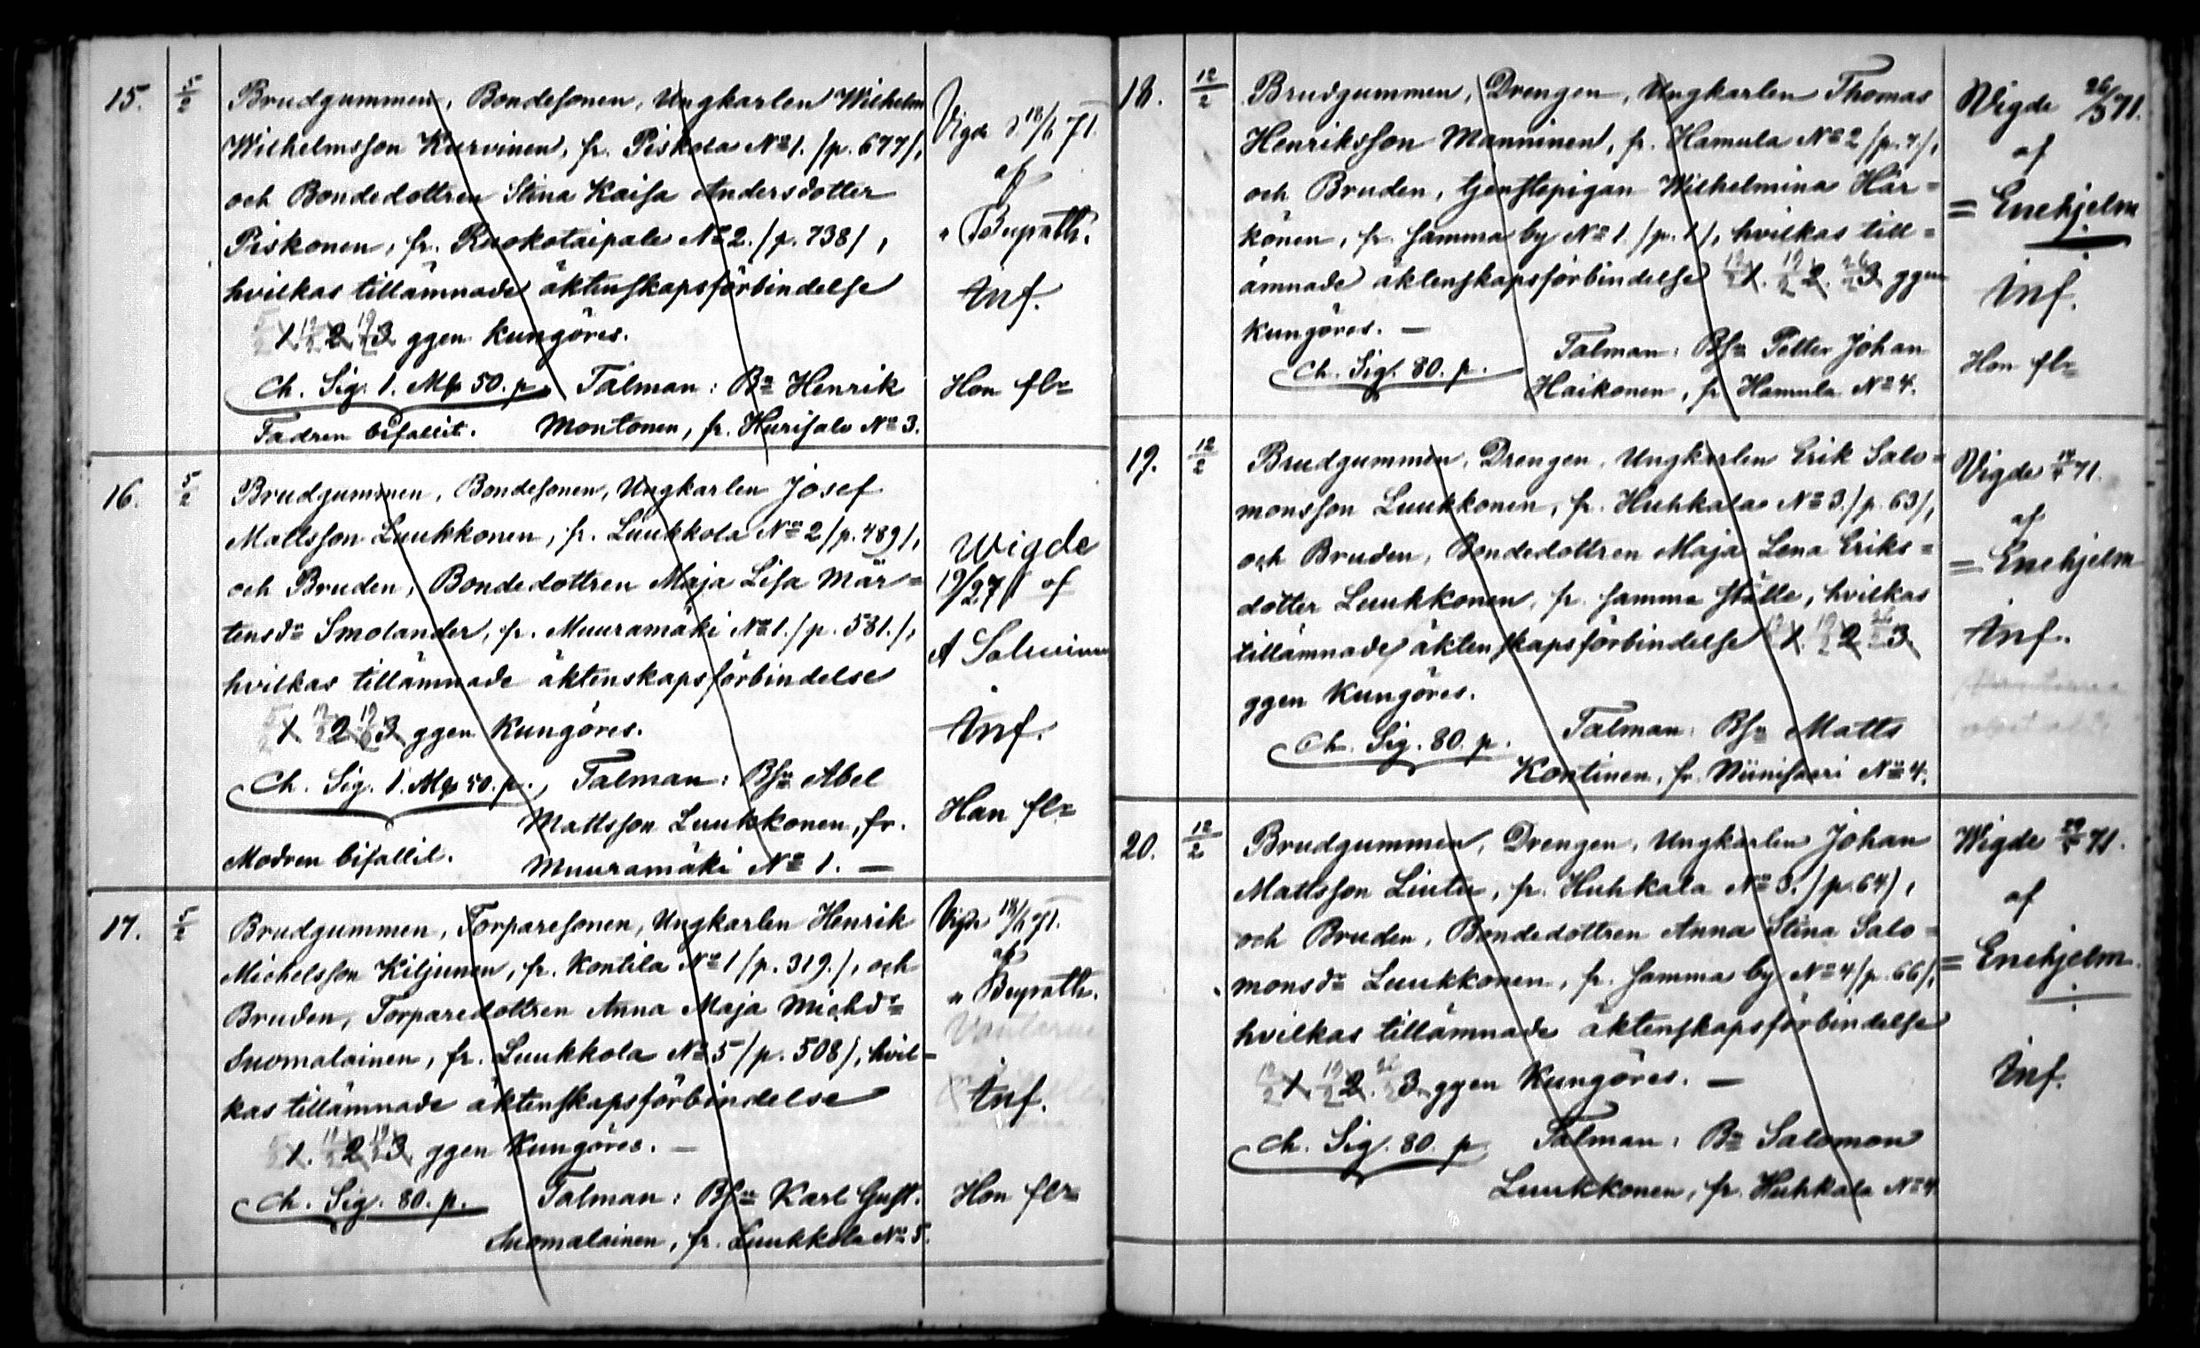 15. 5/2 Brudgummen, Bondesonen, Ungkarlen Wilhelm
Wilhelmsson Kurvinen, fr. Piskola No 1. /p. 677/,
och Bondedottren Stina Kaisa Andersdotter
Piskonen, fr. Ruokotaipale No 2. /p. 738/,
hvilkas tillämnade äktenskapsförbindelse
1. 2. 3 ggen kungöres.
Ch. Sig. 1. Mk 50. p. Talman: Bn Henrik
Fadren bifallit. Montonen, fr. Hurisalo No 3.
Vigde 18/6 71.
af
Inf.
Hon flr
16. 5/2 Brudgummen, Bondesonen, Ungkarlen Josef
Mattsson Luukkonen, fr. Luukkola No 2 /p. 489/,
och Bruden, Bondedottren Maja Lisa Mår=
tensdr Smolander, fr. Muuramäki No 1. /p. 581./,
hvilkas tillämnade äktenskapsförbindelse
1 2 3 ggen Kungöres.
Ch. Sig. 1. Mk 50. p., Talman: Bsn Abel
Mattsson Luukkonen, fr.
Modren bifallit. Muuramäki No 1. —
Wigde
19/2 71 af
Inf.
Han flr
17. 5/2 Brudgummen, Torparesonen, Ungkarlen Henrik
Michelsson Kiljunen, fr. Kontila No 1 /p. 319./, och
Bruden, Torparedottren Anna Maja Michdr
Suomalainen, fr. Luukkola No 5 /p. 508/, hvil=
kas tillämnade äktenskapsförbindelse
1. 2 3 ggen Kungöres. —
Ch. Sig. 80. p. Talman: Bsn Karl Gust.
Suomalainen, fr. Luukkola No 5.
Vigde 18/6 71.
af
Inf.
Hon flr
18. 12/2 Brudgummen, Drengen, Ungkarlen Thomas
Henriksson Manninen, fr. Hamula No 2 /p. 7/,
och Bruden, tjenstepigan Wilhelmina Här=
könen, fr. samma by No 1. /p. 1/, hvilkas till=
ämnade äktenskapsförbindelse 12/2 1. 19/2 2. 26/2 3 ggen
Kungöres. —
Talman: Bsn Petter Johan
Ch. Sig. 80. p. Haikonen, fr. Hamula No 4.
Wigde 26/3 71.
af
= Enehjelm
Inf.
Hon flr
19. 12/2 Brudgummen, Drengen, Ungkarlen Erik Salo=
monsson Luukkonen, fr. Huhkala No 3. /p. 63/,
och Bruden, Bondedottren Maja Lena Eriks=
dotter Luukkonen, fr. samma ställe, hvilkas
tillämnade äktenskapsförbindelse 1. 2 3
ggen Kungöres.
Ch. Sig. 80. p. Talman: Bsn Matts
Kontinen, fr. Niinisaari No 4.
Vigde 71.
af
= Enehjelm
Inf.
20. 12/2 Brudgummen, Drengen, Ungkarlen Johan
Mattsson Liutu, fr. Huhkala No 3. /p. 64/,
och Bruden, Bondedottren Anna Stina Salo=
monsdr Luukkonen, fr. samma by No 4 /p. 66/,
hvilkas tillämnade äktenskapsförbindelse
12/2 1 19/2 2. 26/2 3. ggen Kungöres. —
Ch. Sig. 80. p Talman: Bn Salomon
Luukkonen, fr. Huhkala No 4.
Wigde 71.
af
= Enehjelm.
Inf.